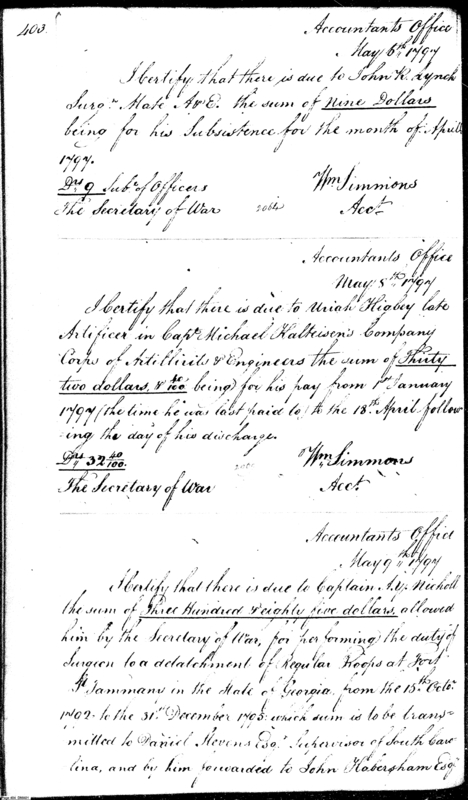 403.
Accountants Office
May 6th 1797
I Certify that there is due to John R. Lynch
Surgn. Mate A & E. the sum of Nine Dollars
being for his Subsistence for the month of April
1797.
Drs 9 Subce of Officers Wm Simmons
The Secretary of War 2064 Acct.
Accountants Office
May 8th 1797
I Certify that there is due to Uriah Higbey late
Artificer in Capt. Michael Kalteisen's Company
Corps of Artillirists & Engineers the sum of Thirty
two dollars, & 40/100 being for his pay from 1st January
1797 (the time he was last paid to) to the 18th April follow
ing the day of his discharge.
Drs 32 40/100. Wm Simmons
The Secretary of War Acct.
Accountants Office
May 9th 1797
I Certify that there is due to Captain A. Y. Nicholl
the sum of Three Hundred & eighty five dollars, allowed
him by the Secretary of War, for performing the duty of
Surgeon to a detatchment of Regular Troops at Fort
St. Tammany in the State of Georgia, from the 15th Octor.
1792 to the 31st December 1795: which sum is to be trans=
mitted to Daniel Stevens Esqr. Supervisor of South Caro
lina, and by him forwarded to John Habersham Esqr.